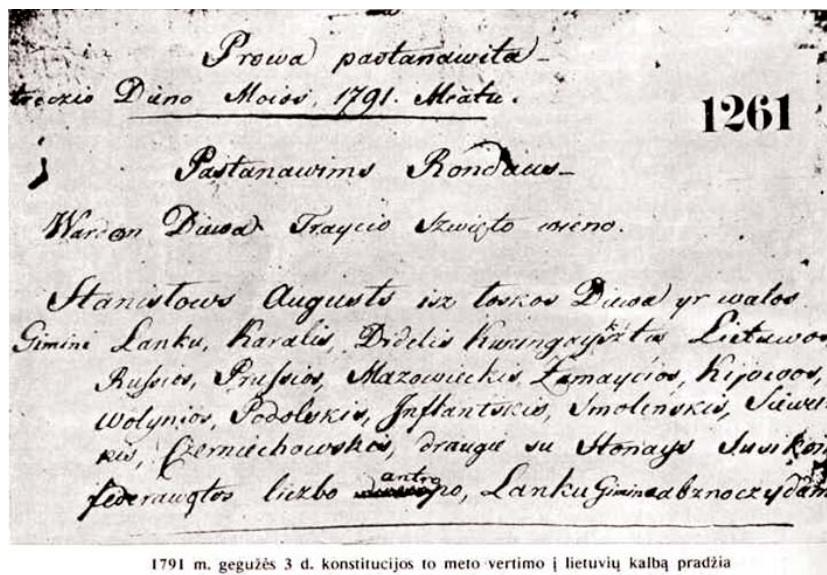 Prowa pastanawita
treczio Dieno Moiss, 1791. Miatu.
1261
Pastanawims Rondaus
Wardan Diewa Traycio Szwięto wieno.
Stanisłows Augusts isz łoskos Diewa yr walos
Gimini Lanku, Karalis, Didelis Kuningaykßtis Lietuwos,
Russios, Prussios, Mazowieckis Żamaycios, Kijowos,
Wolynios, Podolskis, Inflantskis, Smolenskis, Siewir
kis, Czerniechowskis, draugie su Stonays Susikon
federawątos liczbo antro po, Lanku Gimine abznoczydam
1791 m. gegužės 3 d. konstitucijos to meto vertimo į lietuvių kalbą pradžia